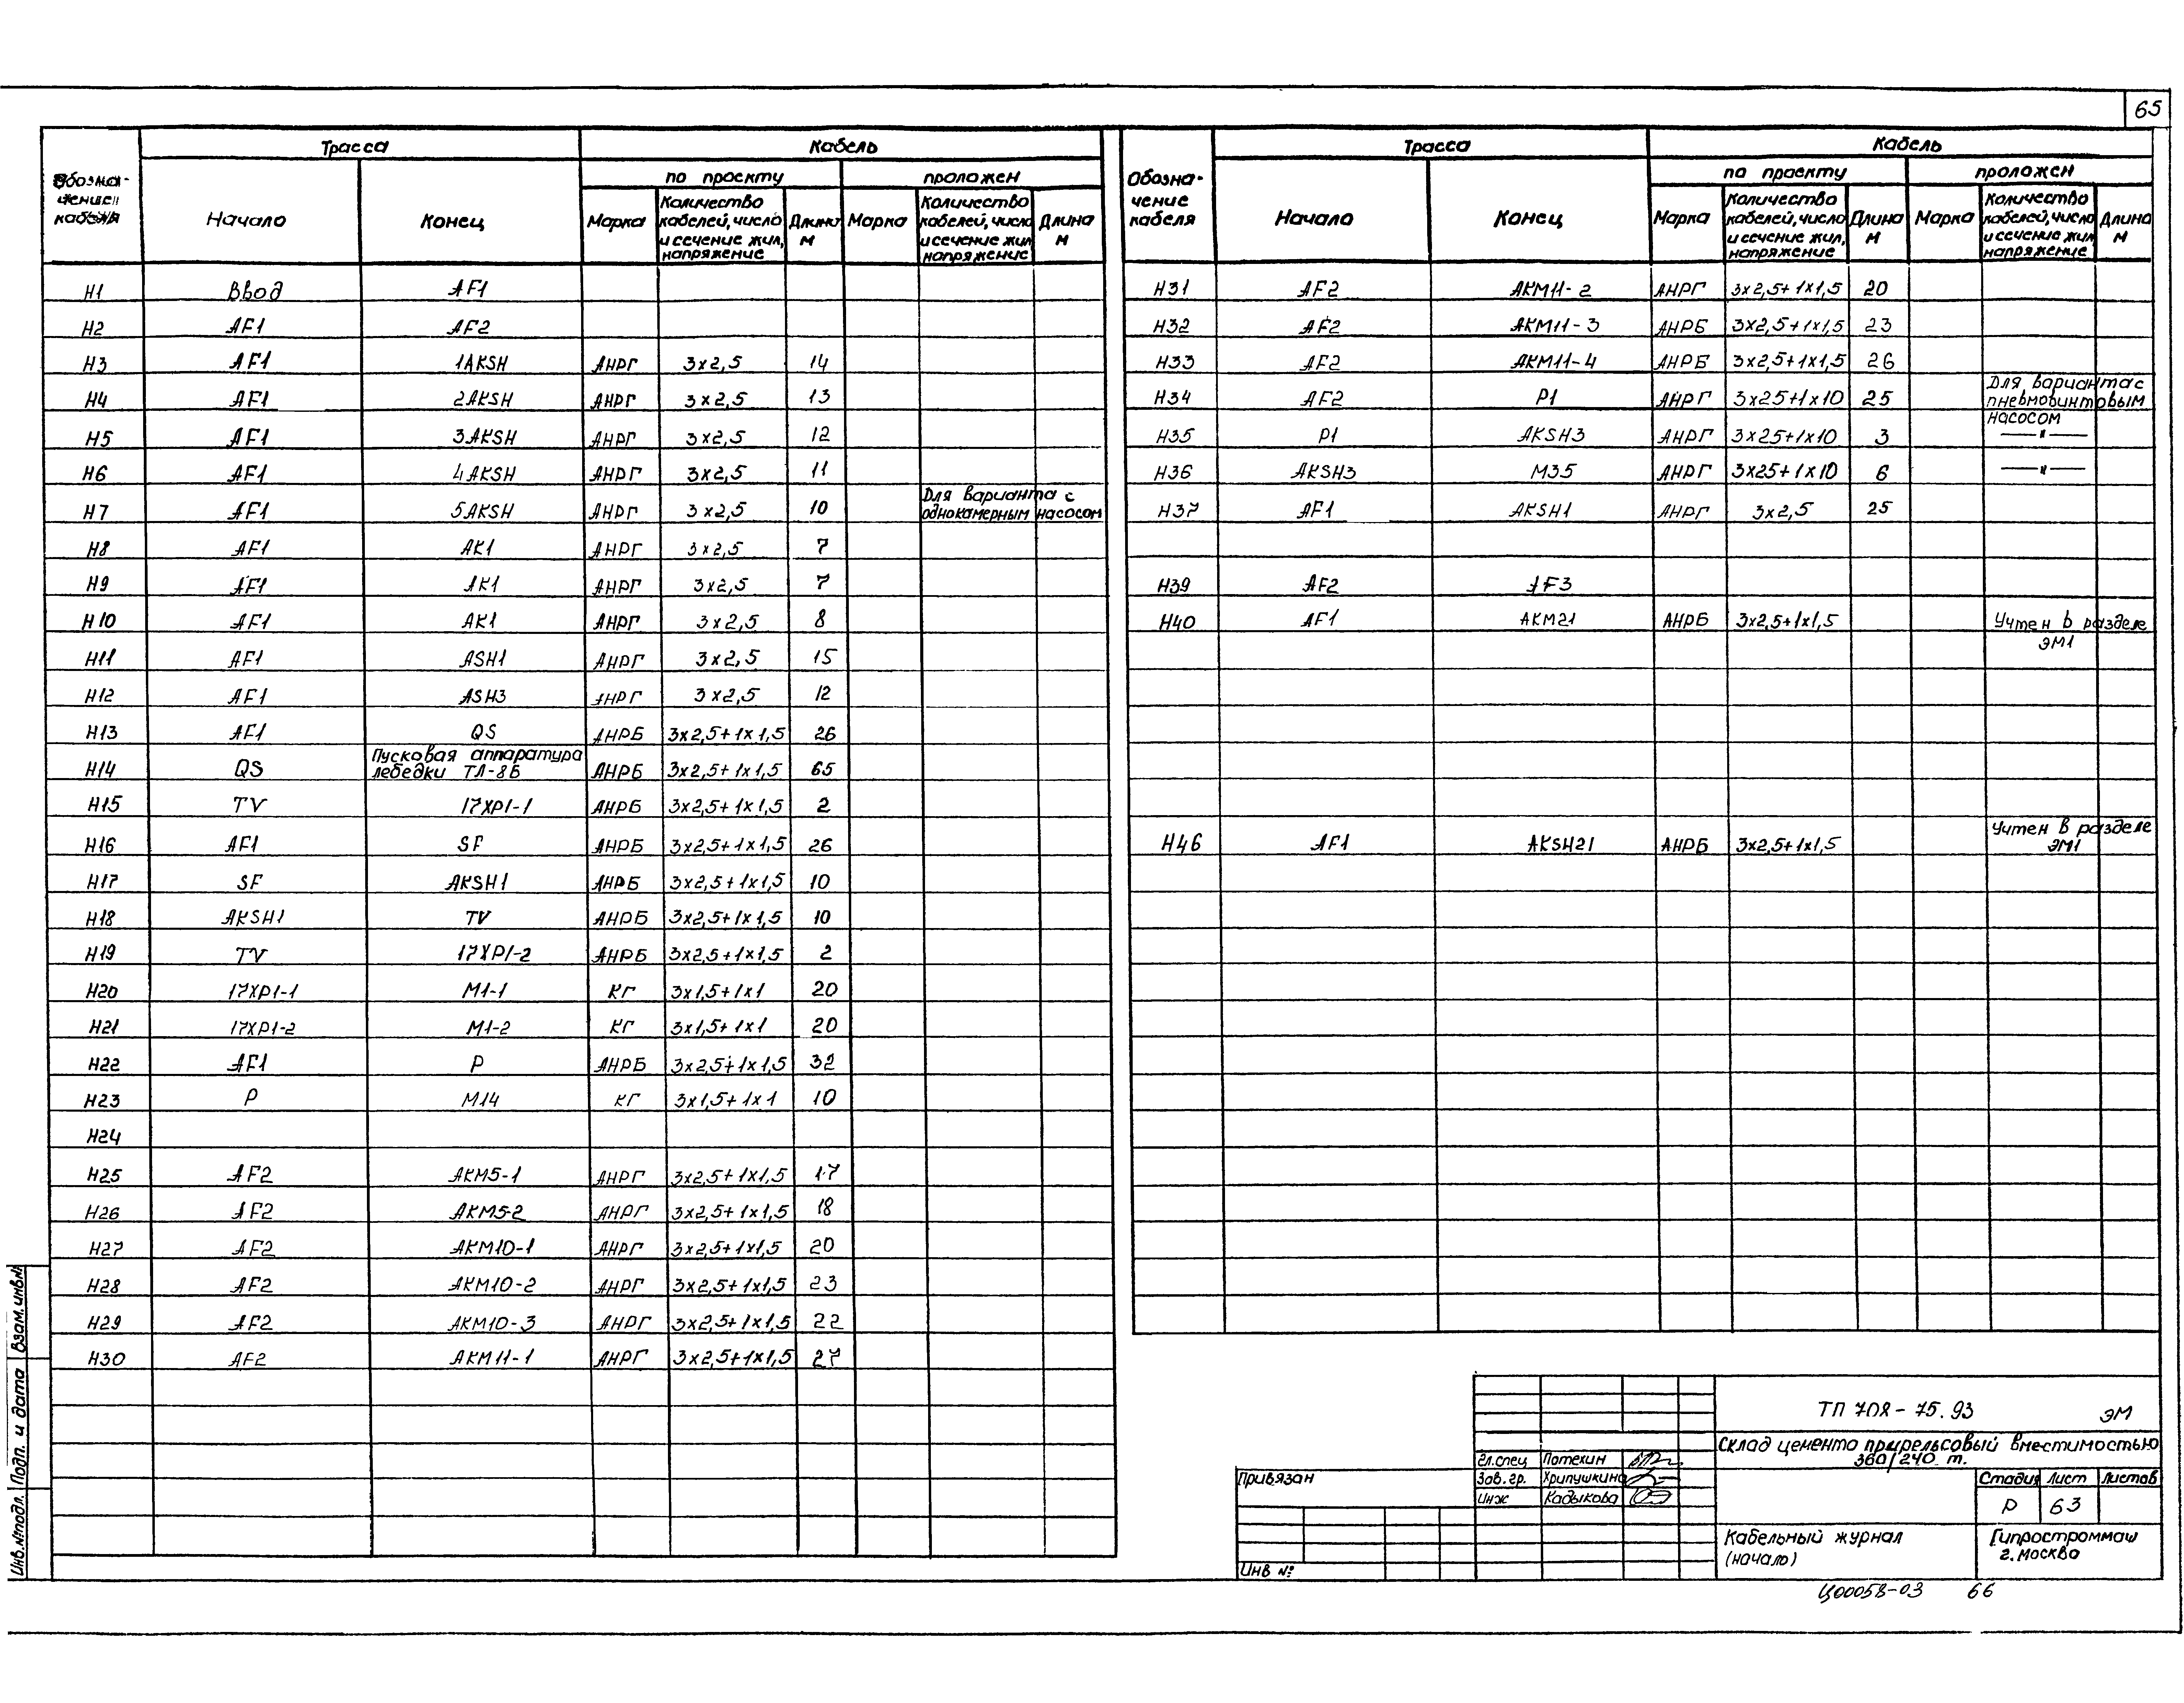 65
Обозна-
чение
кабеля
Трасса
Кабель
Начало
Конец
по проекту
проложен
Марка
Количество
кабелей, число
и сечение жил,
напряжение
Длина
м
Марка
Количество
кабелей, число
и сечение жил
напряжение
Длина
м
Н1 Ввод AF1
Н2 AF1 AF2
Н3 AF1 1AKSH АНРГ 3х2,5 14
Н4 AF1 2AKSH АНРГ 3х2,5 13
Н5 AF1 3AKSH АНРГ 3х2,5 12
Н6 AF1 4AKSH АНРГ 3х2,5 11
Н7 AF1 5AKSH АНРГ 3х2,5 10 Для варианта с
однокамерным насосом
Н8 AF1 AK1 АНРГ 3х2,5 7
Н9 AF1 AK1 АНРГ 3х2,5 7
Н10 AF1 AK1 АНРГ 3х2,5 8
Н11 AF1 ASH1 АНРГ 3х2,5 15
Н12 AF1 ASH3 АНРГ 3х2,5 12
Н13 AF1 QS АНРБ 3х2,5+1х1,5 26
Н14 QS Пусковая аппаратура
лебедки ТЛ-8Б АНРБ 3х2,5+1х1,5 65
Н15 TV 17ХР1-1 АНРБ 3х2,5+1х1,5 2
Н16 AF1 SF АНРБ 3х2,5+1х1,5 26
Н17 SF AKSH1 АНРБ 3х2,5+1х1,5 10
Н18 AKSH1 TV АНРБ 3х2,5+1х1,5 10
Н19 TV 17ХР1-2 АНРБ 3х2,5+1х1,5 2
Н20 17ХР1-1 М1-1 КГ 3х1,5+1х1 20
Н21 17ХР1-2 М1-2 КГ 3х1,5+1х1 20
Н22 AF1 Р АНРБ 3х2,5+1х1,5 32
Н23 Р М14 КГ 3х1,5+1х1 10
Н24
Н25 AF2 АКМ5-1 АНРГ 3х2,5+1х1,5 17
Н26 AF2 АКМ5-2 АНРГ 3х2,5+1х1,5 18
Н27 AF2 АКМ10-1 АНРГ 3х2,5+1х1,5 20
Н28 AF2 АКМ10-2 АНРГ 3х2,5+1х1,5 23
Н29 AF2 АКМ10-3 АНРГ 3х2,5+1х1,5 22
Н30 AF2 АКМ11-1 АНРГ 3х2,5+1х1,5 27
Обозна-
чение
кабеля
Трасса
Кабель
Начало
Конец
по проекту
проложен
Марка
Количество
кабелей, число
и сечение жил,
напряжение
Длина
м
Марка
Количество
кабелей, число
и сечение жил
напряжение
Длина
м
Н31 AF2 АКМ11-2 АНРГ 3х2,5+1х1,5 20
Н32 AF2 АКМ11-3 АНРБ 3х2,5+1х1,5 23
Н33 AF2 АКМ11-4 АНРБ 3х2,5+1х1,5 26
Н34 AF2 Р1 АНРГ 3х25+1х10 25 Для варианта с
пневмовинтовым
насосом
Н35 Р1 AKSH3 АНРГ 3х25+1х10 3 —"—
Н36 AKSH3 М35 АНРГ 3х25+1х10 6 —"—
Н37 AF1 AKSH1 АНРГ 3х2,5 25
Н39 AF2 AF3
Н40 AF1 АКМ21 АНРБ 3х2,5+1х1,5 Учтен в разделе
ЭМ1
Н46 AF1 AKSH21 АНРБ 3х2,5+1х1,5 Учтен в разделе
ЭМ1
Взам.инв.№
Подп. и дата
Инв.№подл.
Привязан
Инв №
Гл.спец Потехин
Зав.гр. Хрипушкина
Инж Кадыкова
ТП 708-75.93 ЭМ
Склад цемента прирельсовый вместимостью
360/240 т.
Стадия Лист Листов
Р 63
Кабельный журнал
(начало)
Гипростроммаш
г.Москва
Ц00058-03 66